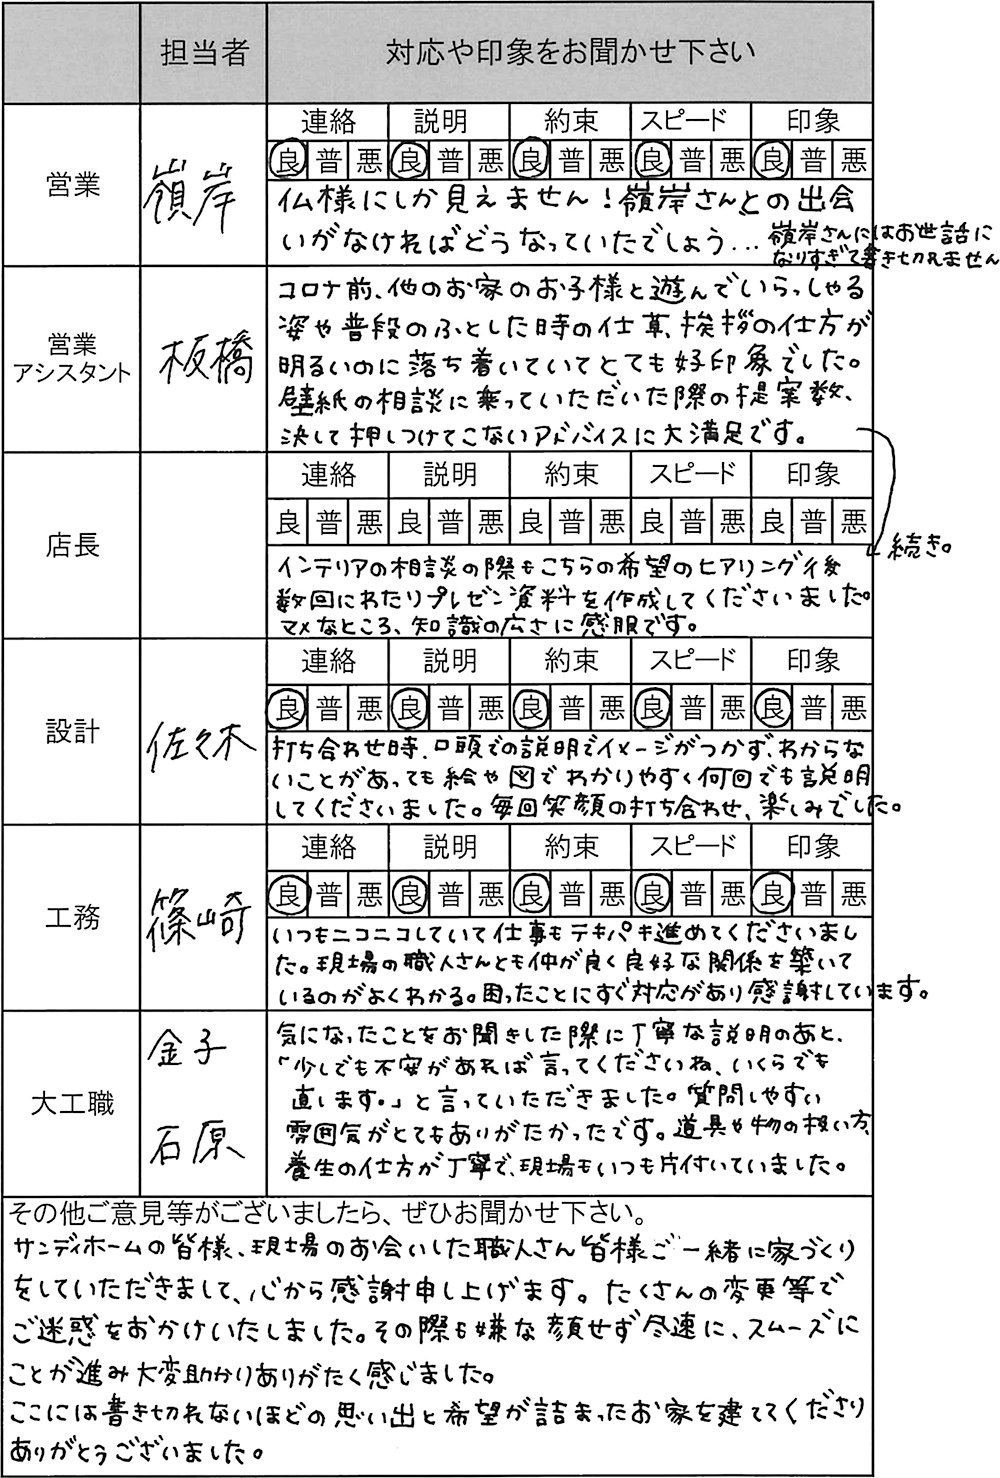 担当者 対応や印象をお聞かせ下さい
連絡 説明 約束 スピード 印象
良 普 悪 良 普 悪 良 普 悪 良 普 悪 良 普 悪
営業 嶺岸
仏様にしか見えません！嶺岸さんとの出会
いがなければどうなっていたでしょう…
嶺岸さんにはお世話に
なりすぎて書き切れません
営業
アシスタント
板橋
コロナ前、他のお家のお子様と遊んでいらっしゃる
姿や普段のふとした時の仕草、挨拶の仕方が
明るいのに落ち着いていてとても好印象でした。
壁紙の相談に乗っていただいた際の提案数、
決して押しつけてこないアドバイスに大満足です。
連絡 説明 約束 スピード 印象
良 普 悪 良 普 悪 良 普 悪 良 普 悪 良 普 悪
店長
続き。
インテリアの相談の際もこちらの希望のヒアリング後
数回にわたりプレゼン資料を作成してくださいました。
マメなところ、知識の広さに感服です。
連絡 説明 約束 スピード 印象
良 普 悪 良 普 悪 良 普 悪 良 普 悪 良 普 悪
設計 佐々木
打ち合わせ時、口頭での説明でイメージがつかず、わからな
いことがあっても絵や図でわかりやすく何回でも説明
してくださいました。毎回笑顔の打ち合わせ、楽しみでした。
連絡 説明 約束 スピード 印象
良 普 悪 良 普 悪 良 普 悪 良 普 悪 良 普 悪
工務 篠崎
いつもニコニコしていて仕事もテキパキ進めてくださいまし
た。現場の職人さんとも仲が良く良好な関係を築いて
いるのがよくわかる。困ったことにすぐ対応があり感謝しています。
大工職
金子
石原
気になったことをお聞きした際に丁寧な説明のあと、
「少しでも不安があれば言ってくださいね、いくらでも
直します。」と言っていただきました。質問しやすい
雰囲気がとてもありがたかったです。道具や物の扱い方、
養生の仕方が丁寧で、現場もいつも片付いていました。
その他ご意見等がございましたら、ぜひお聞かせ下さい。
サンディホームの皆様、現場のお会いした職人さん皆様ご一緒に家づくり
をしていただきまして、心から感謝申し上げます。たくさんの変更等で
ご迷惑をおかけいたしました。その際も嫌な顔せず尽速に、スムーズに
ことが進み大変助かりありがたく感じました。
ここには書き切れないほどの思い出と希望が詰まったお家を建ててくださり
ありがとうございました。